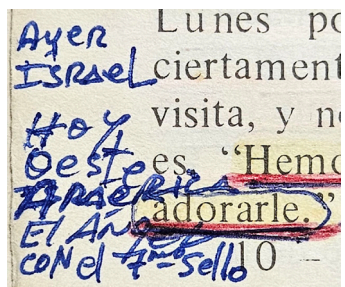 Ayer
Israel
Hoy
Oeste
América
El Angel
con el 7mo Sello
Lunes po
ciertament
visita, y n
es, “Hemo
adorarle.”
10 –